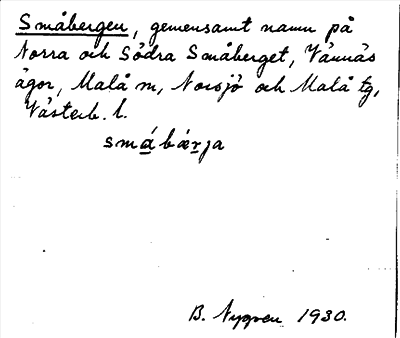 Småbergen, gemensamt namn på
Norra och Södra Småberget, Vännäs
ägor, Malå sn, Norsjö och Malå tg,
Västerb. l.
småbærja
B. Nygren 1930.